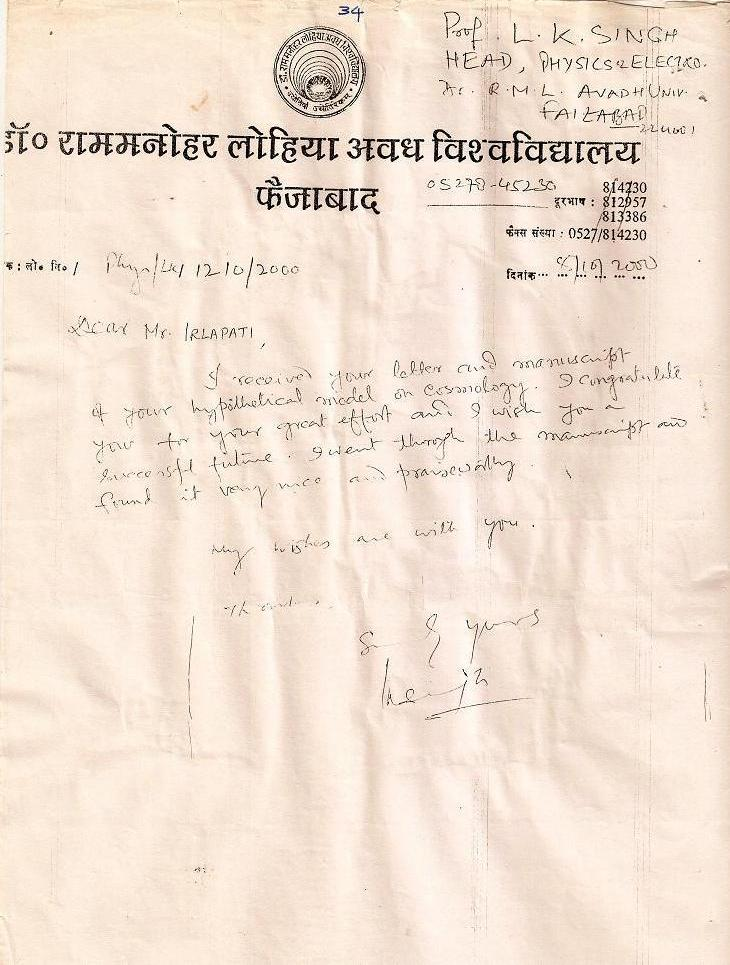 34
Prof. L. K. SINGH
HEAD, PHYSICS & ELECTRO.
Dr. R. M. L. AVADH UNIV.
FAIZABAD
224001
डॉ० राममनोहर लोहिया अवध विश्वविद्यालय
फैजाबाद
05278-45230
814230
दूरभाष : 812957
813386
फैक्स संख्या : 0527/814230
क : लो० वि० / Phys/ 12/0/2000
दिनांक 8/10/2000
Dear Mr. IRLAPATI,
I received your letter and manuscript
of your hypothetical model on cosmology. I congratulate
you for your great effort and I wish you a
successful future. I went through the manuscript and
found it very nice and praiseworthy.
My wishes are with you.
Thanks.
yours